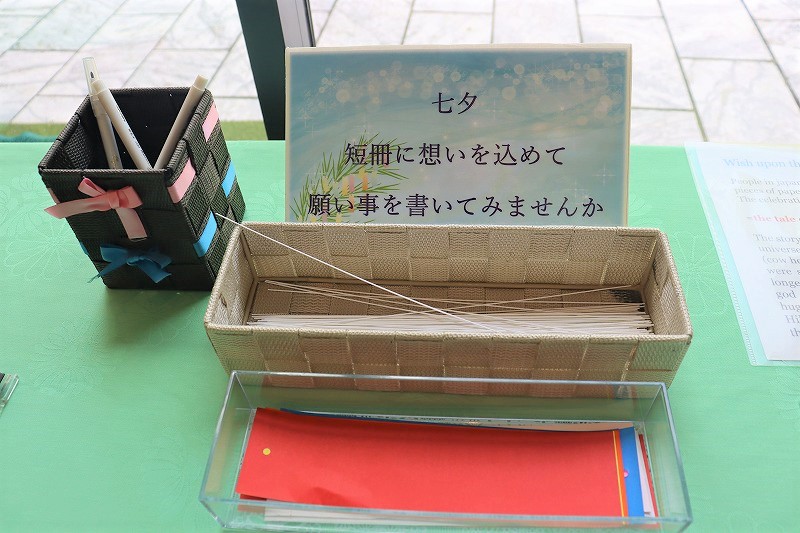 七夕
短冊に想いを込めて
願い事を書いてみませんか
Wish upon the
People in Japan
pieces of paper
The celebration
The story
universe
(cow he
were s
longe
god
hug